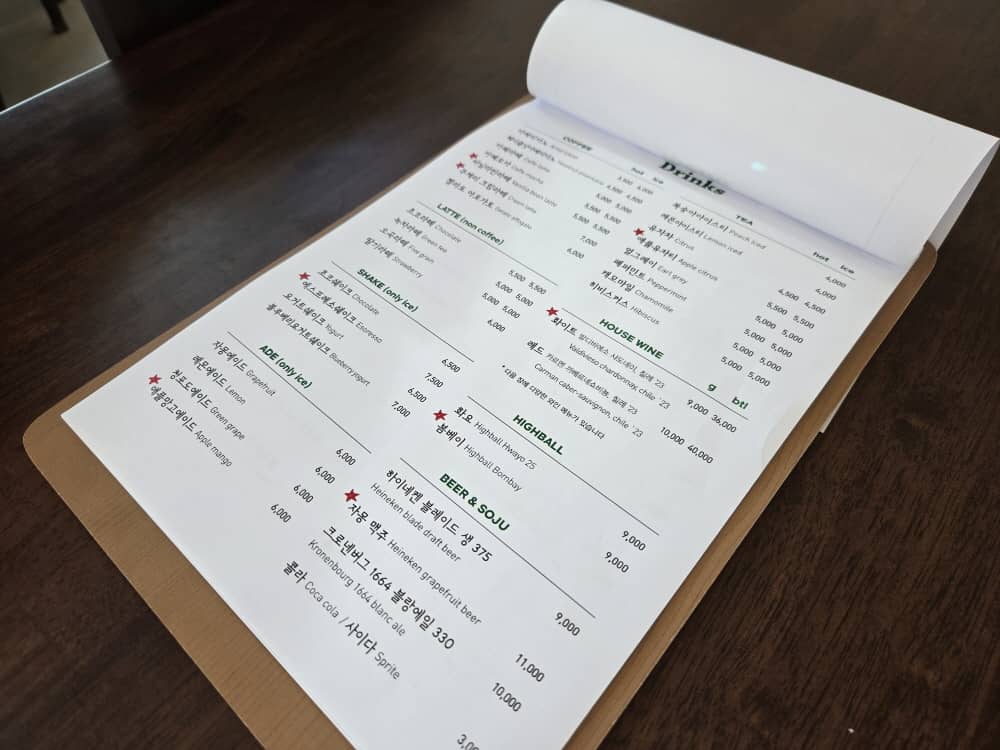 Drinks
COFFEE
hot ice
아메리카노 Americano 3,500 4,000
헤이즐넛아메리카노 Hazelnut americano 4,000 4,500
카페라떼 Caffe latte 5,000 5,000
카페모카 Caffe mocha 5,500 5,500
바닐라빈라떼 Vanilla bean latte 5,500 5,500
크림라떼 Cream latte 7,000
젤라또 아포가토 Gelato affogato 6,000
LATTE (non coffee)
초코라떼 Chocolate 5,500 5,500
녹차라떼 Green tea 5,000 5,000
오곡라떼 Five grain 5,000 5,000
딸기라떼 Strawberry 6,000
SHAKE (only ice)
초코쉐이크 Chocolate 6,500
에스프레소쉐이크 Esoresso 7,500
요거트쉐이크 Yogurt 6,500
블루베리요거트쉐이크 Blueberry yogurt 7,000
ADE (only ice)
자몽에이드 Grapefruit 6,000
레몬에이드 Lemon 6,000
청포도에이드 Green grape 6,000
애플망고에이드 Apple mango 6,000
TEA
hot ice
복숭아아이스티 Peach iced 4,000
레몬아이스티 Lemon iced 4,000
유자차 Citrus 4,500 4,500
애플유자티 Apple citrus 5,500 5,500
얼그레이 Earl grey 5,000 5,000
페퍼민트 Peppermint 5,000 5,000
캐모마일 Chamomile 5,000 5,000
히비스커스 Hibiscus 5,000 5,000
HOUSE WINE
g btl
화이트 발디비에소 샤도네이, 칠레 '23
Valdivieso chardonnay, chile '23 9,000 36,000
레드 카르멘 까베르네쇼비뇽, 칠레 '23
Carman caber-sauvignon, chile '23 10,000 40,000
* 다음 장에 다양한 와인 메뉴가 있습니다
HIGHBALL
화요 Highball Hwayo 25 9,000
봄베이 Highball Bombay 9,000
BEER & SOJU
하이네켄 블레이드 생 375
Heineken blade draft beer 9,000
자몽 맥주 Heineken grapefruit beer 11,000
크로넨버그 1664 블랑에일 330
Kronenbourg 1664 blanc ale 10,000
콜라 Coca cola / 사이다 Sprite